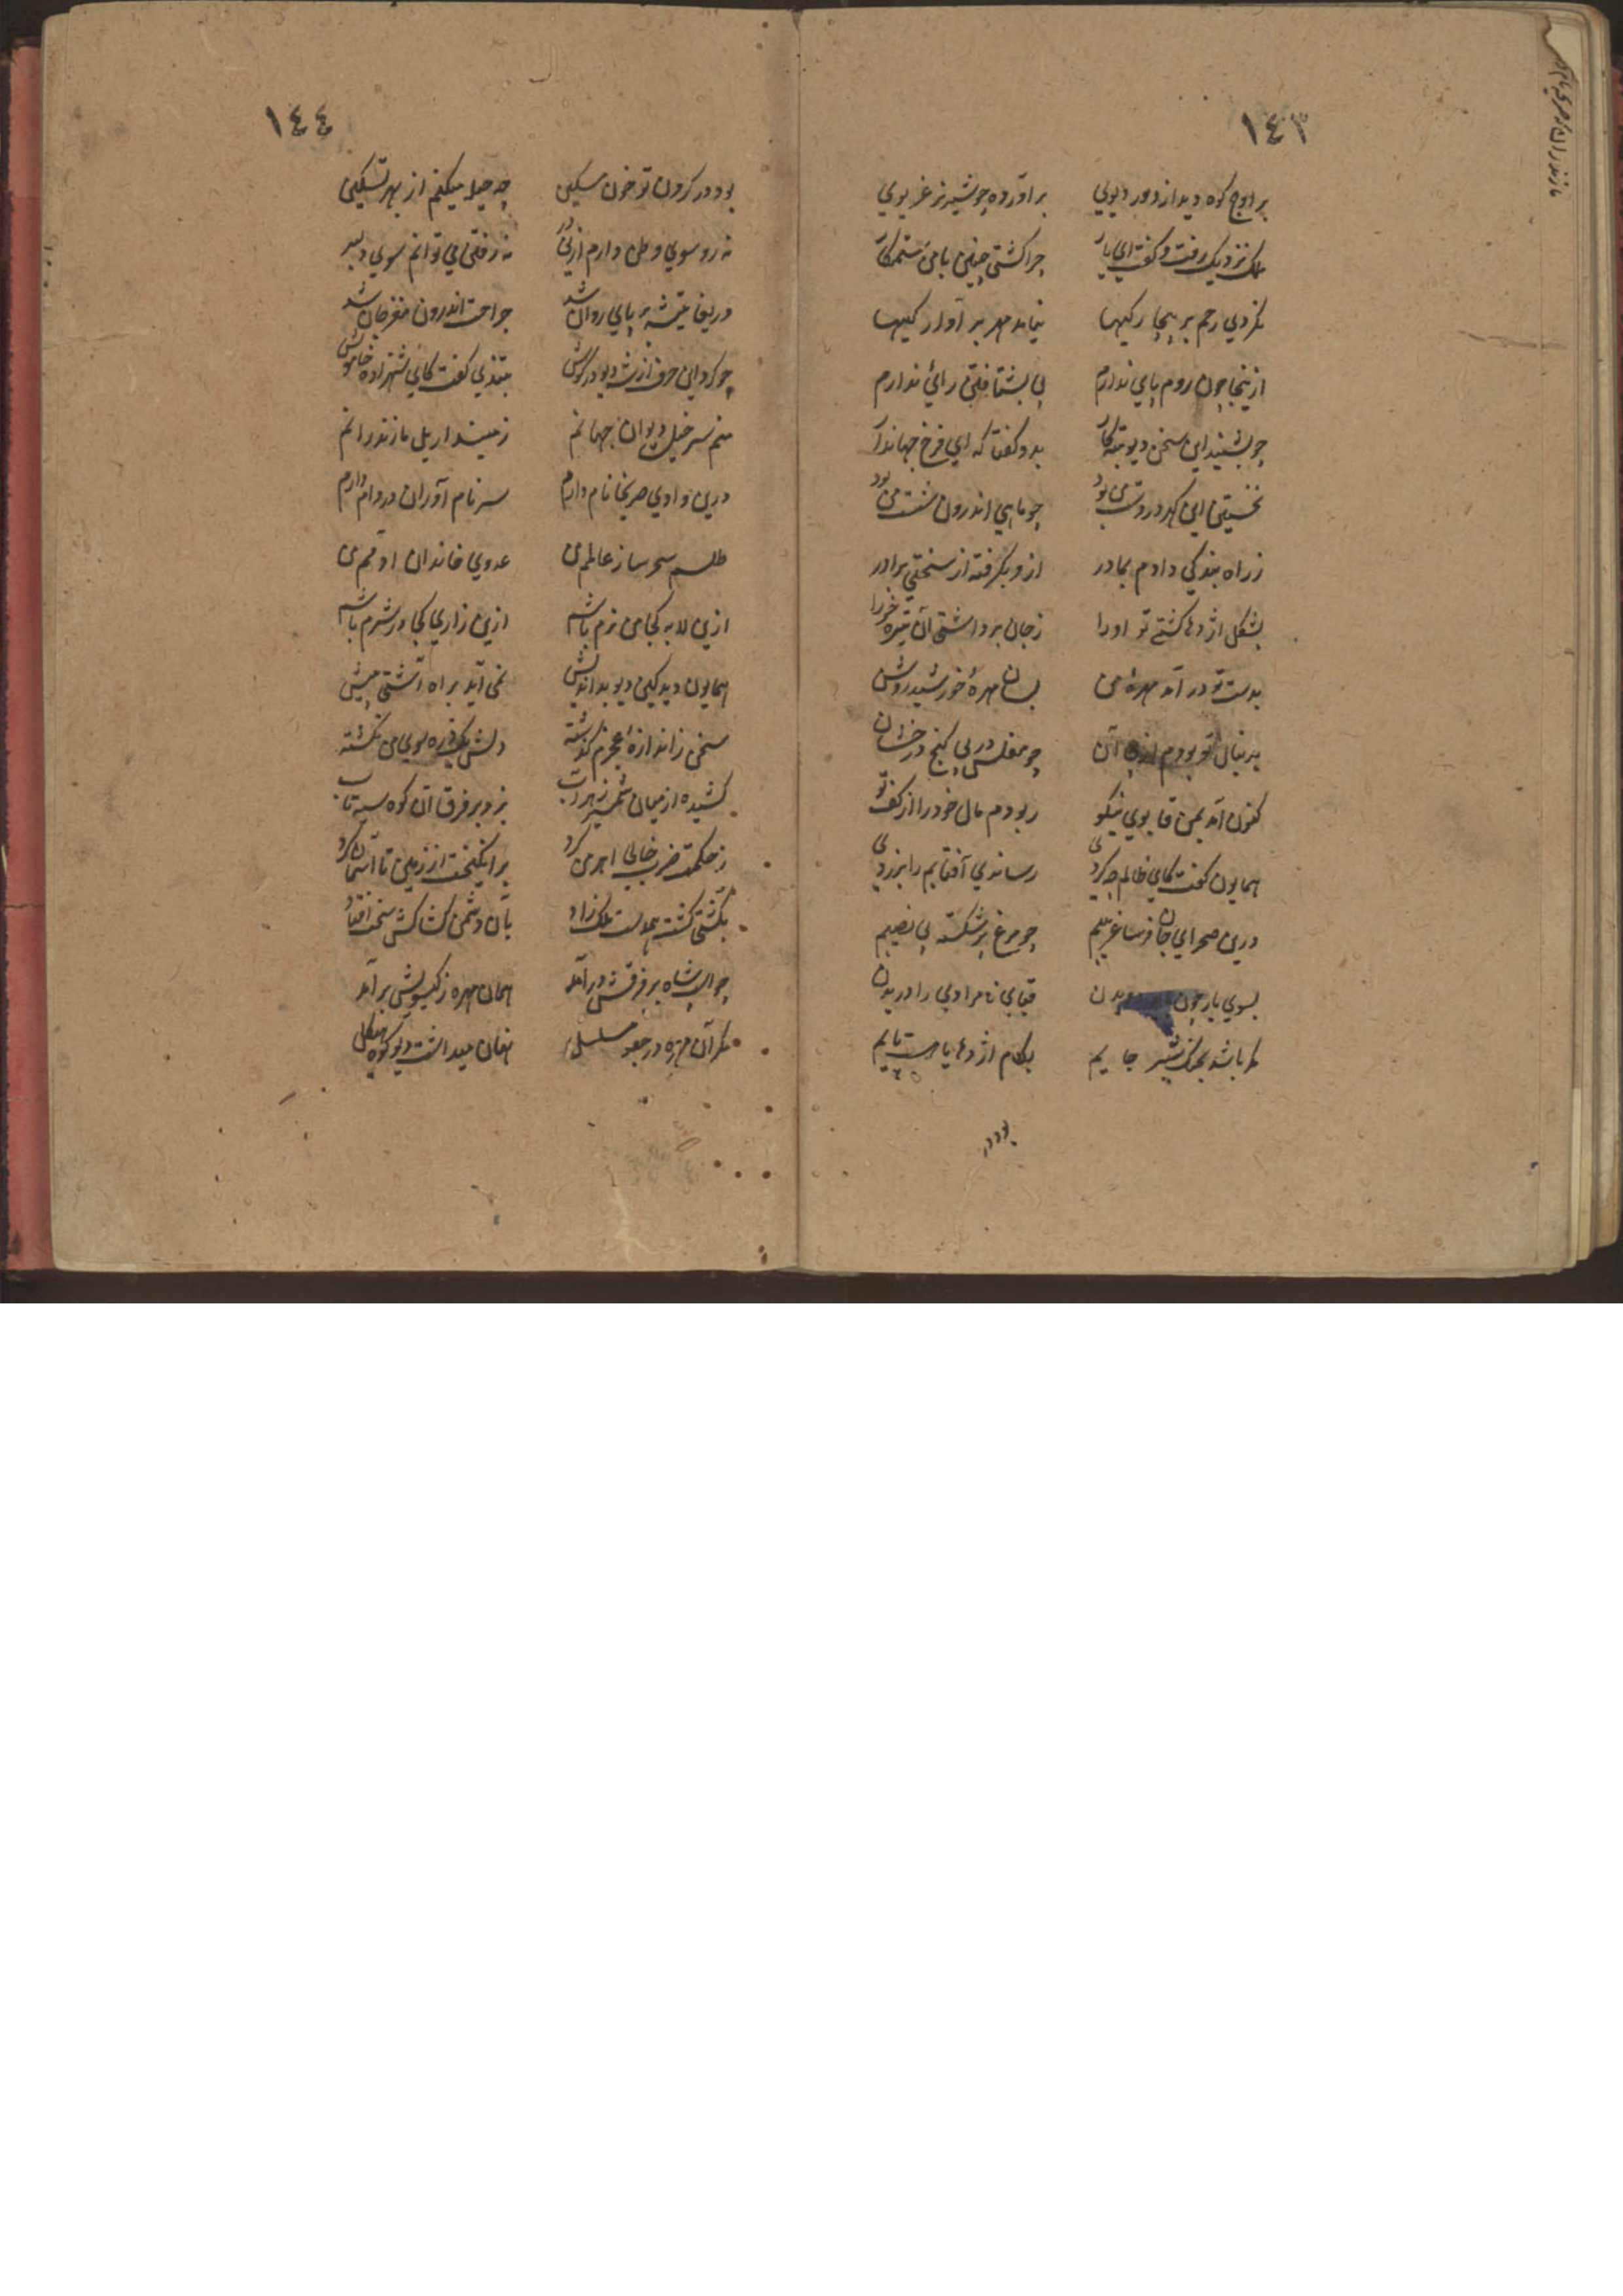 ١٤٣
بر اوج کوه دید از دور دیوی بر آورده چو شیر نر غریوی
ملک نزدیک رفت و گفت ای یار چرا گشتی چنین با من ستمکار
نکردی رحم بر بیچارگیها نیامد مهر بر آوارگیها
ازینجا چون روم پای ندارم بی بشتافتن رائ ندارم
چو بشنید این سخن دیو تبه کار بدو گفتا که ای فرخ جهاندار
نخستین این گهر در دست من بود چو ماهی اندرون شست من بود
ز راه بندگی دادم بمادر ازو بگرفته از سختی برادر
بشکل اژدها کشتی تو او را ز جان برداشتی آن تیره خو را
بدست تو در آمد مهرهٔ من بسان مهرهٔ خورشید روشن
بدنبال تو بودم آن چو مفلس در پی گنج درخشان
کنون آمد بمن قابوی نیکو ربودم مال خود را از کف تو
همایون گفت کای ظالم چه کردی رساندی آفتابم را بزردی
درین صحرای جان فرسا غریبم چو مرغ پر شکسته بی نصیبم
بسوی یار چون قبای نامرادی را دریدن
که باشد بچنگ شیر جایم بکام اژدها یا هست پایم
بود در
مازندران که صریحا نام
١٤٤
بود در گردن تو خون مسکین چه حیله میکنم از بهر تسکین
نه رو سوی وطن دارم ازین در نه رفتن می توانم سوی دلبر
دریغا تیشه بر پای روان شد جراحت اندرون مغز جان شد
چو کرد این حرف از شه دیو در گوش بتندی گفت کای شهزاده خاموش
منم سر خیل دیوان جهانم زمیندار یل مازندرانم
درین وادی صریحا نام دارم سر نام آوران در دام دارم
طلسم سحر ساز عالم من عدوی خاندان آدم من
ازین لابه کجا من نرم باشم ازین زاری کجا در شرم باشم
همایون دید کین دیو بداندیش نمی آید براه آشتی پیش
سخن ز اندازهٔ عجزم گذشته دلش یکذره سوی من نگشته
کشیده از میان شمشیر زهراب بزد بر فرق آن کوه سیه تاب
ز حکمت ضرب خالی اهرمن کرد بر انگیخت از زمین تا آسمان گرد
بکشتی گشت همدست ملک زاد بآن دشمن کشاکش سخت افتاد
چو آن شاه بر فرقش در آمد همان مهره ز گیسویش بر آمد
مگر آن مهره در جعد مسلسل نهان میداشت دیو کوه هیکل